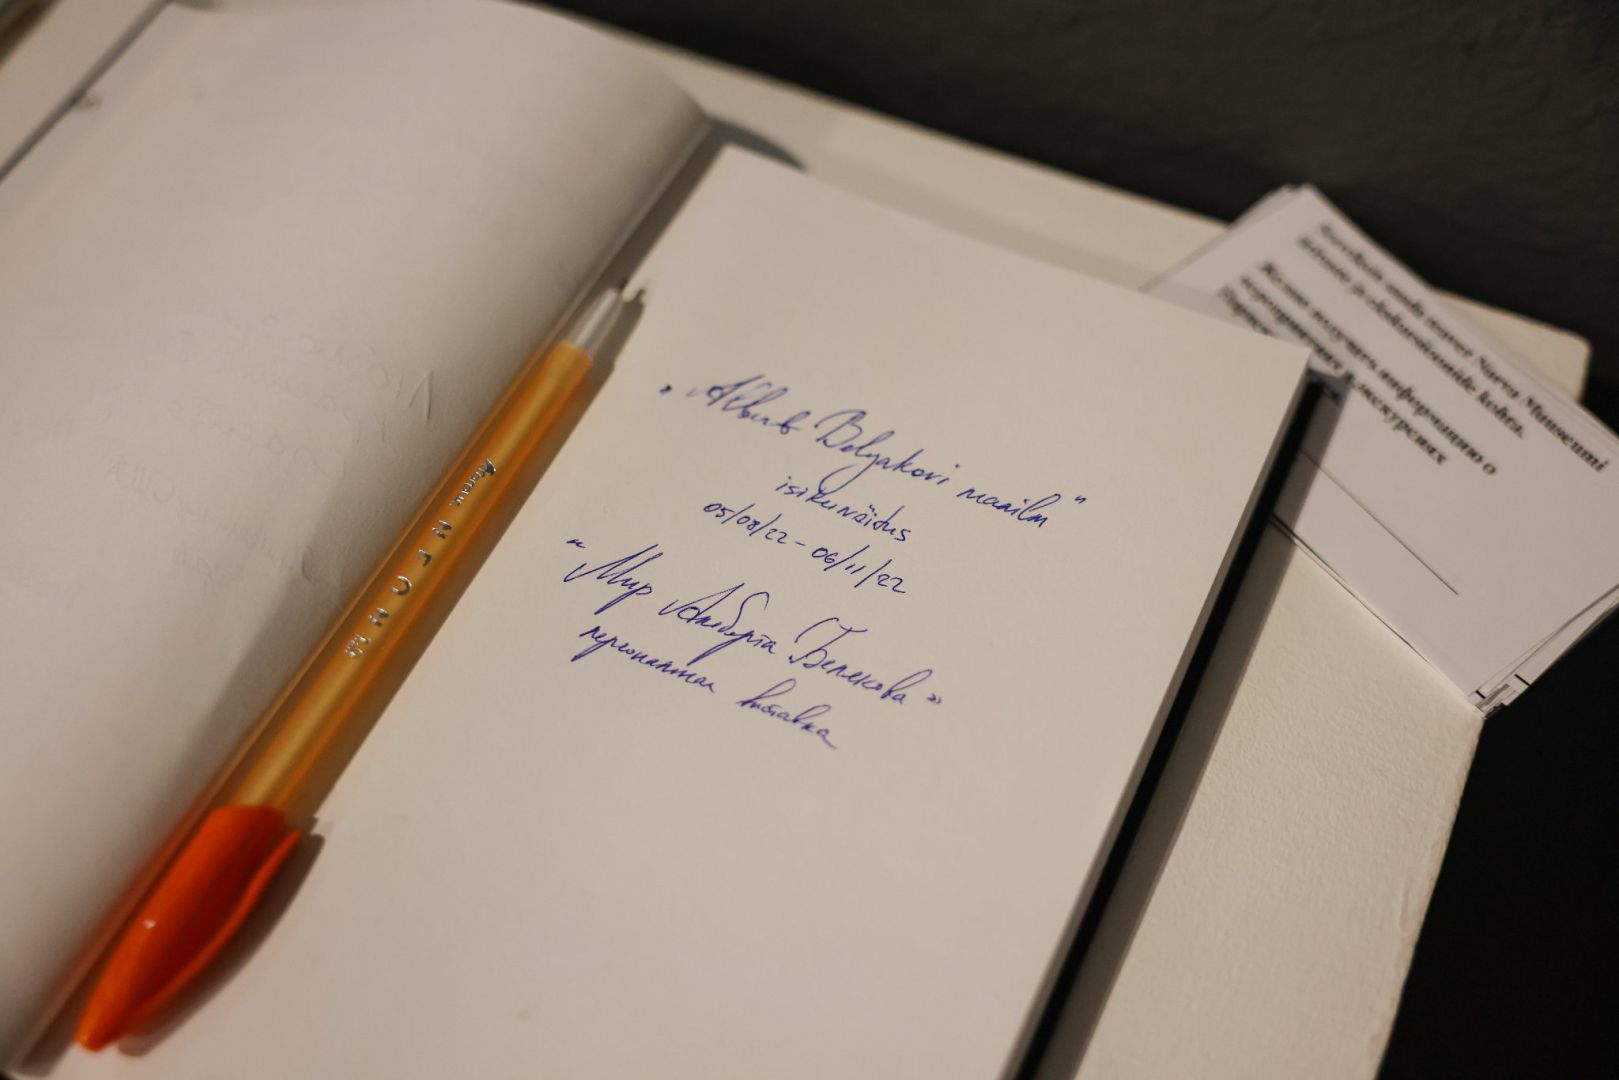 „Albert Belyakovi maailm"
isikunäitus
05/08/22 - 06/11/22
"Мир Альберта Белякова»
персональная выставка
Soovin saada teavet Narva Muuseumi
ürituste ja ekskursioonide kohta.
Желаю получать информацию о
мероприятиях и экскурсиях